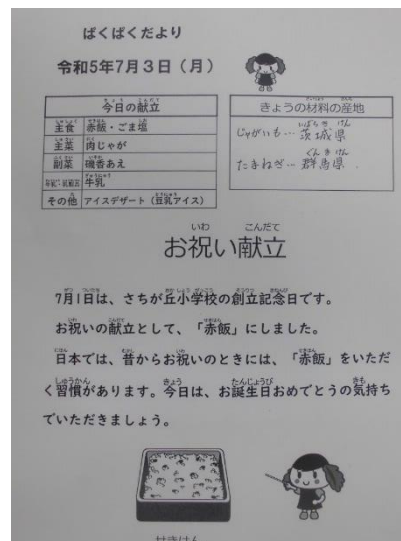 ぱくぱくだより
令和5年7月3日(月)
今日の献立
主食 赤飯・ごま塩
主菜 肉じゃが
副菜 磯香あえ
牛乳・乳製品 牛乳
その他 アイスデザート(豆乳アイス)
きょうの材料の産地
じゃがいも…茨城県
たまねぎ…群馬県
お祝い献立
7月1日は、さちが丘小学校の創立記念日です。
お祝いの献立として、「赤飯」にしました。
日本では、昔からお祝いのときには、「赤飯」をいただ
く習慣があります。今日は、お誕生日おめでとうの気持ち
でいただきましょう。
せきはん